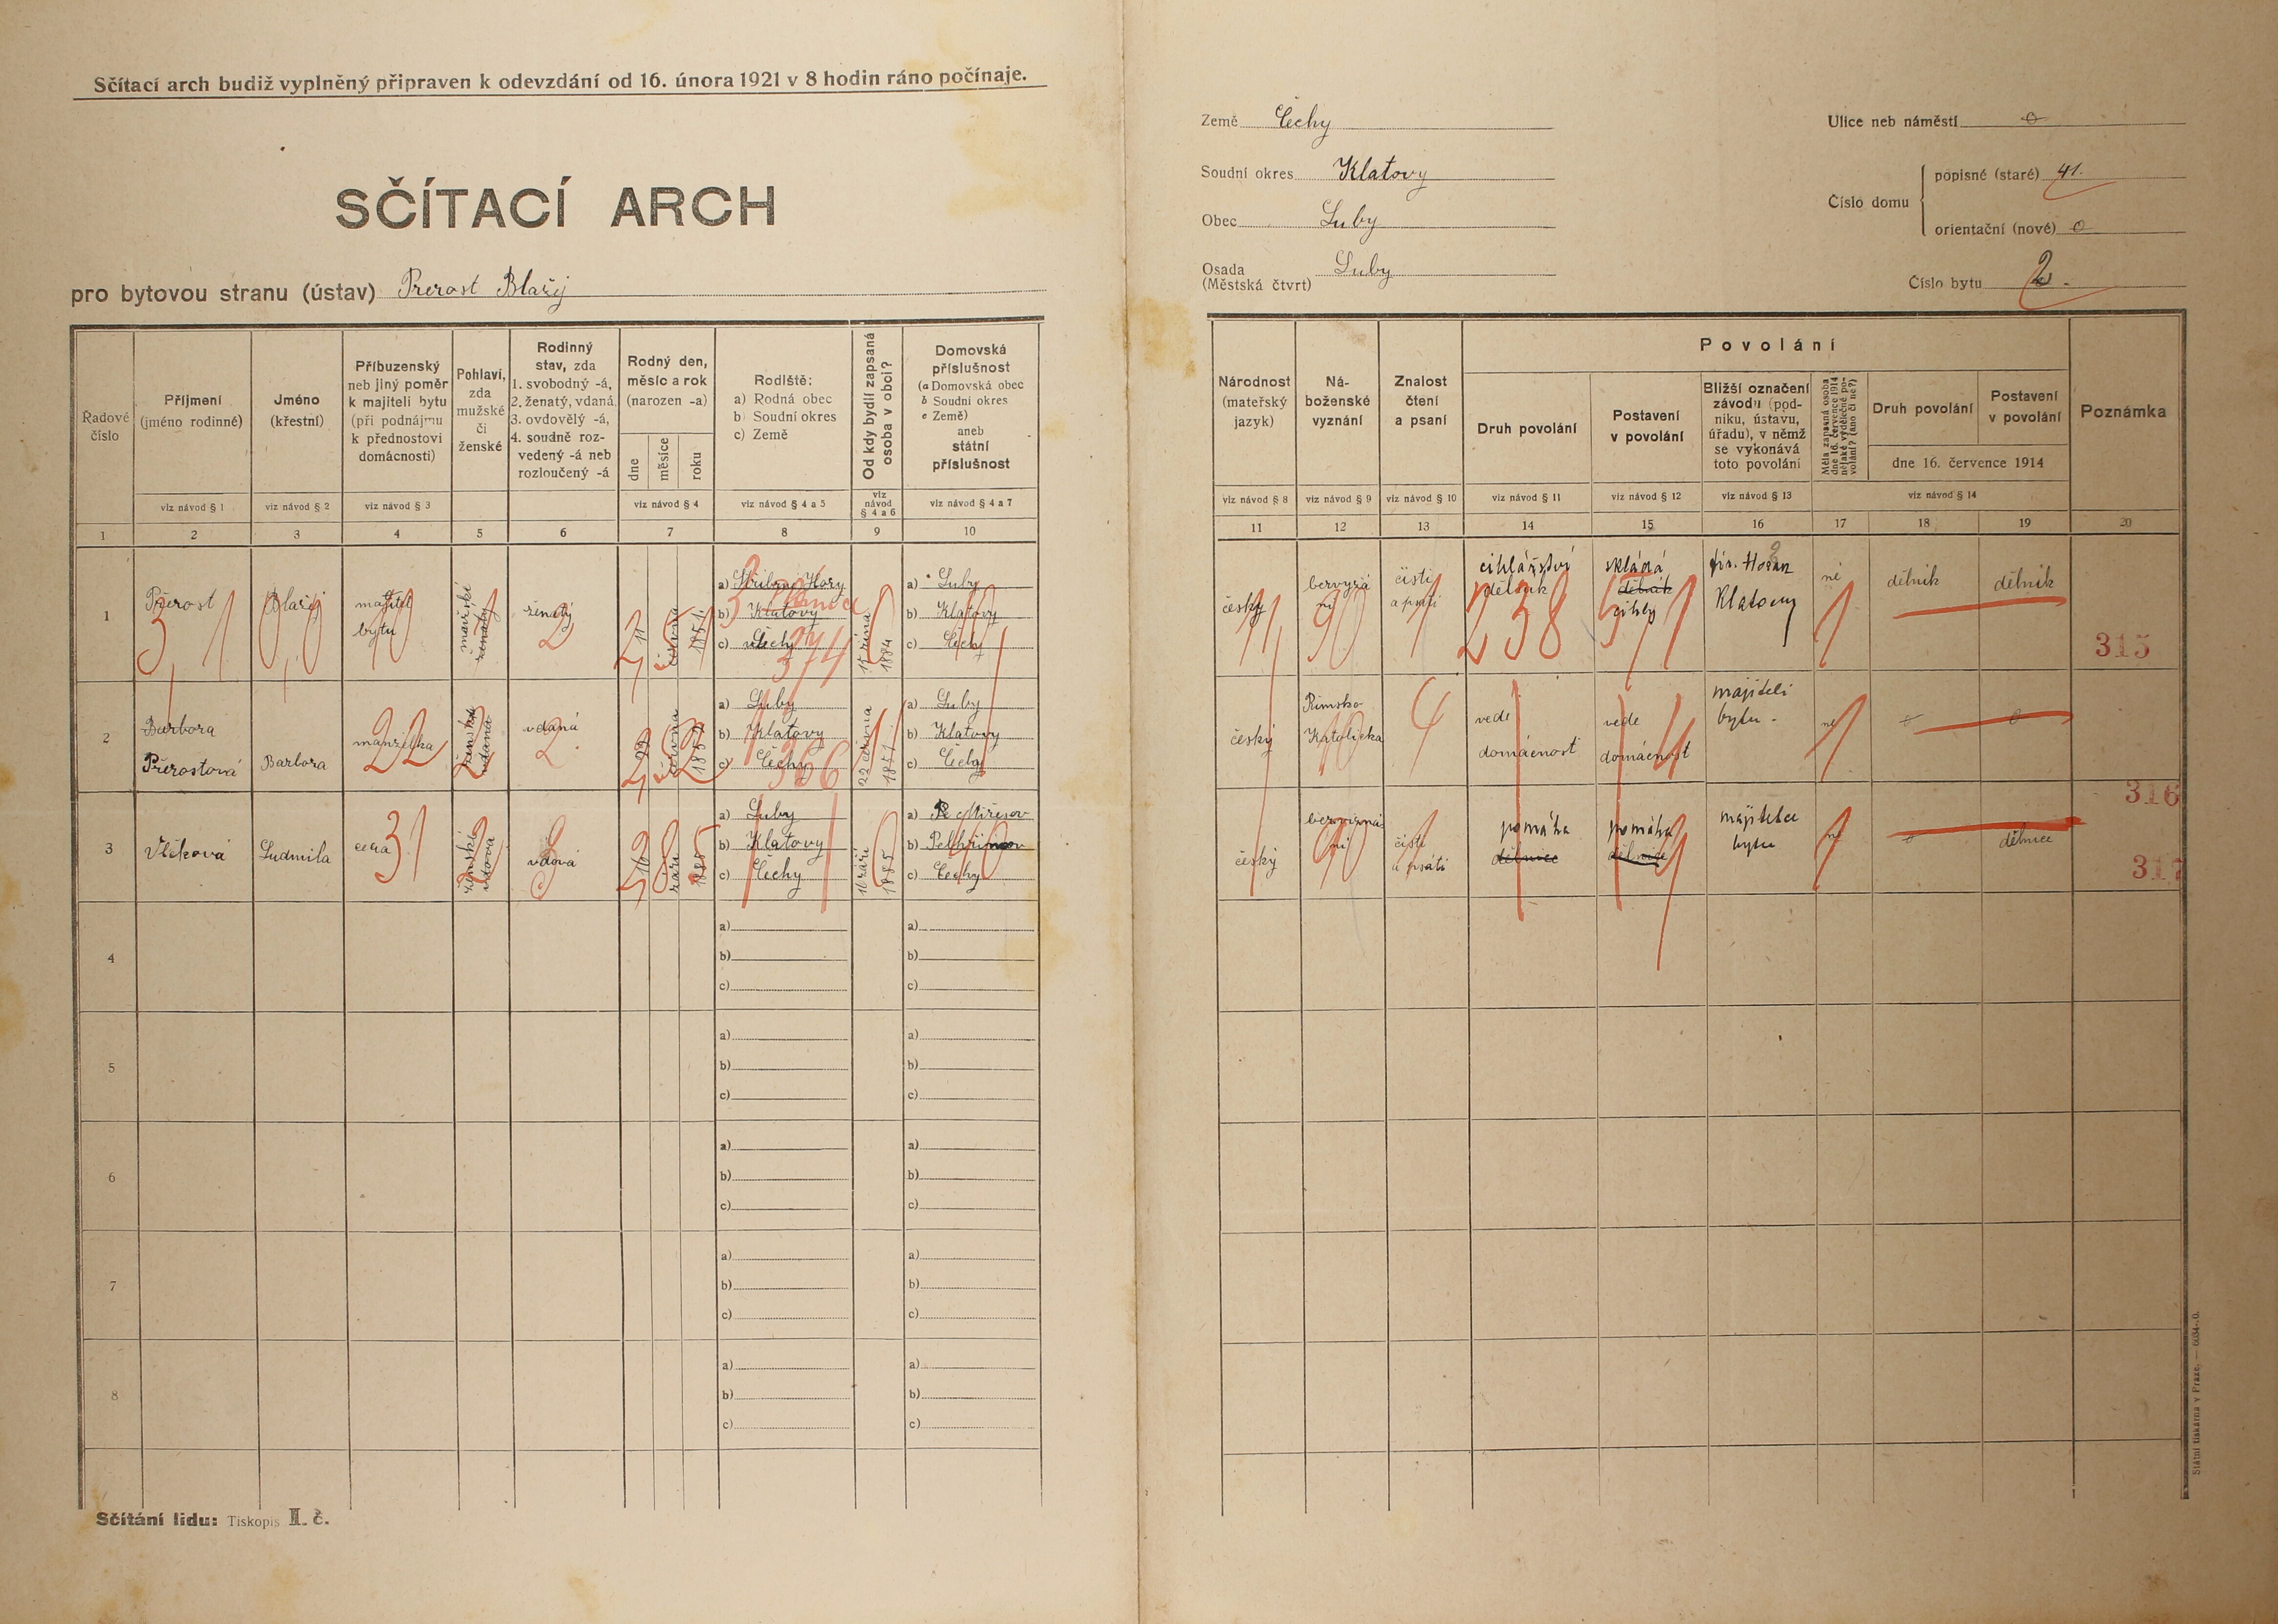 Sčítací arch budiž vyplněný připraven k odevzdání od 16. února 1921 v 8 hodin ráno počínaje.
SČÍTACÍ ARCH
pro bytovou stranu (ústav) Přerost Blažej
Země Čechy
Soudní okres Klatovy
Obec Luby
Osada (Městská čtvrt) Luby
Ulice neb náměstí o
Číslo domu
popisné (staré) 41.
orientační (nové) o
Číslo bytu 2.
Řadové číslo
Příjmení (jméno rodinné)
Jméno (křestní)
Příbuzenský neb jiný poměr k majiteli bytu (při podnájmu k přednostovi domácnosti)
Pohlaví, zda mužské či ženské
Rodinný stav, zda
1. svobodný -á,
2. ženatý, vdaná
3. ovdovělý -á,
4. soudně rozvedený -á neb rozloučený -á
Rodný den, měsíc a rok (narozen -a)
dne
měsíce
roku
Rodiště:
a) Rodná obec
b) Soudní okres
c) Země
Od kdy bydlí zapsaná osoba v obci?
Domovská příslušnost
(a Domovská obec
b Soudní okres
c Země)
aneb
státní příslušnost
viz návod § 1
viz návod § 2
viz návod § 3
viz návod § 4
viz návod § 4 a 5
viz návod § 4 a 6
viz návod § 4 a 7
1 2 3 4 5 6 7 8 9 10
Národnost (mateřský jazyk)
Náboženské vyznání
Znalost čtení a psaní
Povolání
Druh povolání
Postavení v povolání
Bližší označení závodu (podniku, ústavu, úřadu), v němž se vykonává toto povolání
Měla zapsaná osoba dne 16. července 1914 nějaké výdělečné povolání? (ano či ne?)
Druh povolání
Postavení v povolání
dne 16. července 1914
Poznámka
viz návod § 8
viz návod § 9
viz návod § 10
viz návod § 11
viz návod § 12
viz návod § 13
viz návod § 14
11 12 13 14 15 16 17 18 19 20
1
Přerost
Blažej
majitel
bytu
mužské
ženatý
ženatý
2
11
1851
a) Stříbrné Hory
b) Klatovy
c) Čechy
374
1884
a) Luby
b) Klatovy
c) Čechy
český
bezvyzná
ní
čísti
a psáti
cihlářství
dělník
238
skládá
dělník
cihly
fir. Hořan
Klatovy
né
dělník
dělník
315
2
Barbora
Přerostová
Barbora
manželka
22
ženská
vdaná
vdaná
2
a) Luby
b) Klatovy
c) Čechy
366
a) Luby
b) Klatovy
c) Čechy
český
Římsko
Katolická
4
vede
domácnost
vede
domácnost
majiteli
bytu.
né
o
o
316
3
Vlčková
Ludmila
cera
31
ženská
vdova
vdova
3
16
září
1885
a) Luby
b) Klatovy
c) Čechy
16 září
1885
b) Pelhřimov
c) Čechy
český
bezvyzná
ní
čísti
a psáti
pomáhá
dělnice
pomáhá
dělnice
majitelce
bytu
né
o
dělnice
317
4
a)
b)
c)
a)
b)
c)
5
a)
b)
c)
a)
b)
c)
6
a)
b)
c)
a)
b)
c)
7
a)
b)
c)
a)
b)
c)
8
a)
b)
c)
a)
b)
c)
Sčítání lidu: Tiskopis II. č.
Státní tiskárna v Praze. — 6034-0.